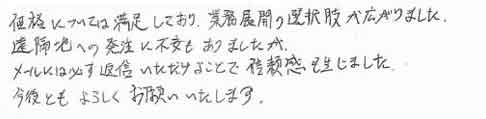 価格については満足しており、業務展開の選択肢が広がりました。
遠隔地への発注に不安もありましたが、
メールには必ず返信いただけることで信頼感も生じました。
今後ともよろしくお願いいたします。